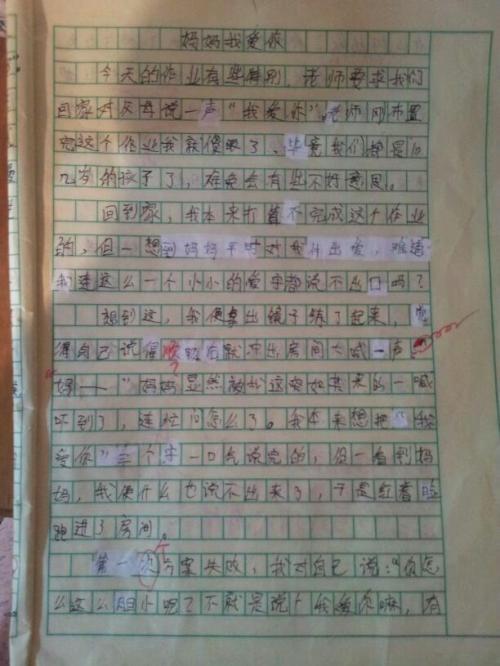 妈妈我爱你
今天的作业有些特别，老师要求我们
回家对父母说一声“我爱你”。老师刚布置
完这个作业我就傻眼了，毕竟我们都是十
几岁的孩子了，难免会有些不好意思。
回到家，我本来打算不完成这个作业
的，但一想到妈妈平时对我付出爱，难道
我连这么一个小小的爱字都说不出口吗？
想到这，我便拿出镜子练了起来，觉
得自己说得顺 后就冲出房间大喊一声
妈——”妈妈显然被我这突如其来的一喊
吓到了，连忙问怎么了。我本来想把“我
爱你”三个字一口气说完的，但一看到妈
妈，我便什么也说不出来了，于是红着脸
跑进了房间。
第一次方案失败，我对自己说：“你怎
么这么胆小呢？不就是说个我爱你嘛，有